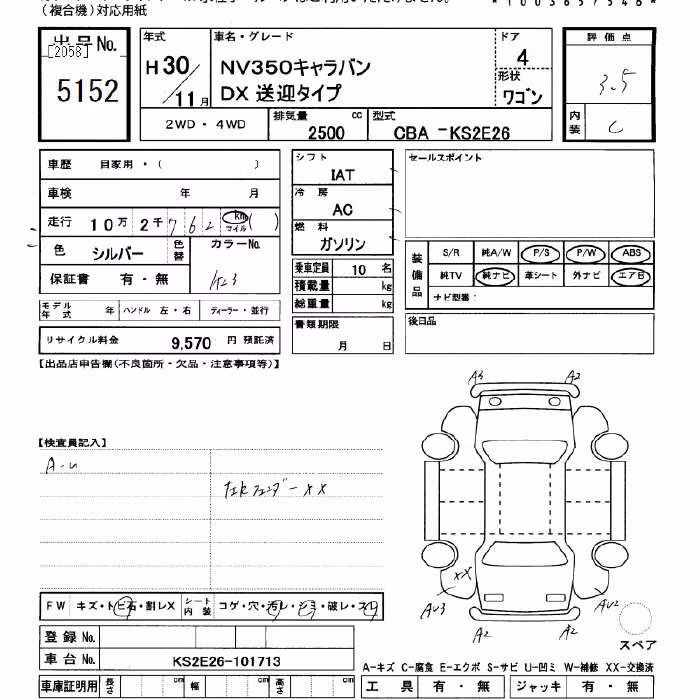 （複合機）対応用紙
*1003657546*
出品No.
[2058]
5152
年式
H30/11月
車名・グレード
NV350キャラバン
DX 送迎タイプ
ドア
4
形状
ワゴン
評価点
3.5
内装
C
2WD・4WD
排気量
2500
cc
型式
CBA -KS2E26
車歴
自家用・（ ）
車検
年 月
走行
10万 2千762
km
マイル
( )
色
シルバー
色替
カラーNo.
K23
保証書
有・無
モデル年式
年
ハンドル 左・右
ディーラー・並行
リサイクル料金
9,570 円 預託済
シフト
IAT
冷房
AC
燃料
ガソリン
乗車定員 10 名
積載量 kg
総重量 kg
書類期限
月 日
セールスポイント
装備品
S/R 純A/W P/S P/W ABS
純TV 純ナビ 革シート 外ナビ エアB
ナビ型番：
後日品
【出品店申告欄(不良箇所・欠品・注意事項等)】
【検査員記入】
A・U
左Rフェンダー XX
A3
A2
XX
AU3
AU2
A2
A2
スペア
FW キズ・トビ石・割レX
シート内装 コゲ・穴・汚レ・シミ・破レ・スレ
登録No.
車台No.
KS2E26-101713
A-キズ C-腐食 E-エクボ S-サビ U-凹ミ W-補修 XX-交換済
車庫証明用 長さ cm 幅 cm 高さ cm
工具 有・無 ジャッキ 有・無